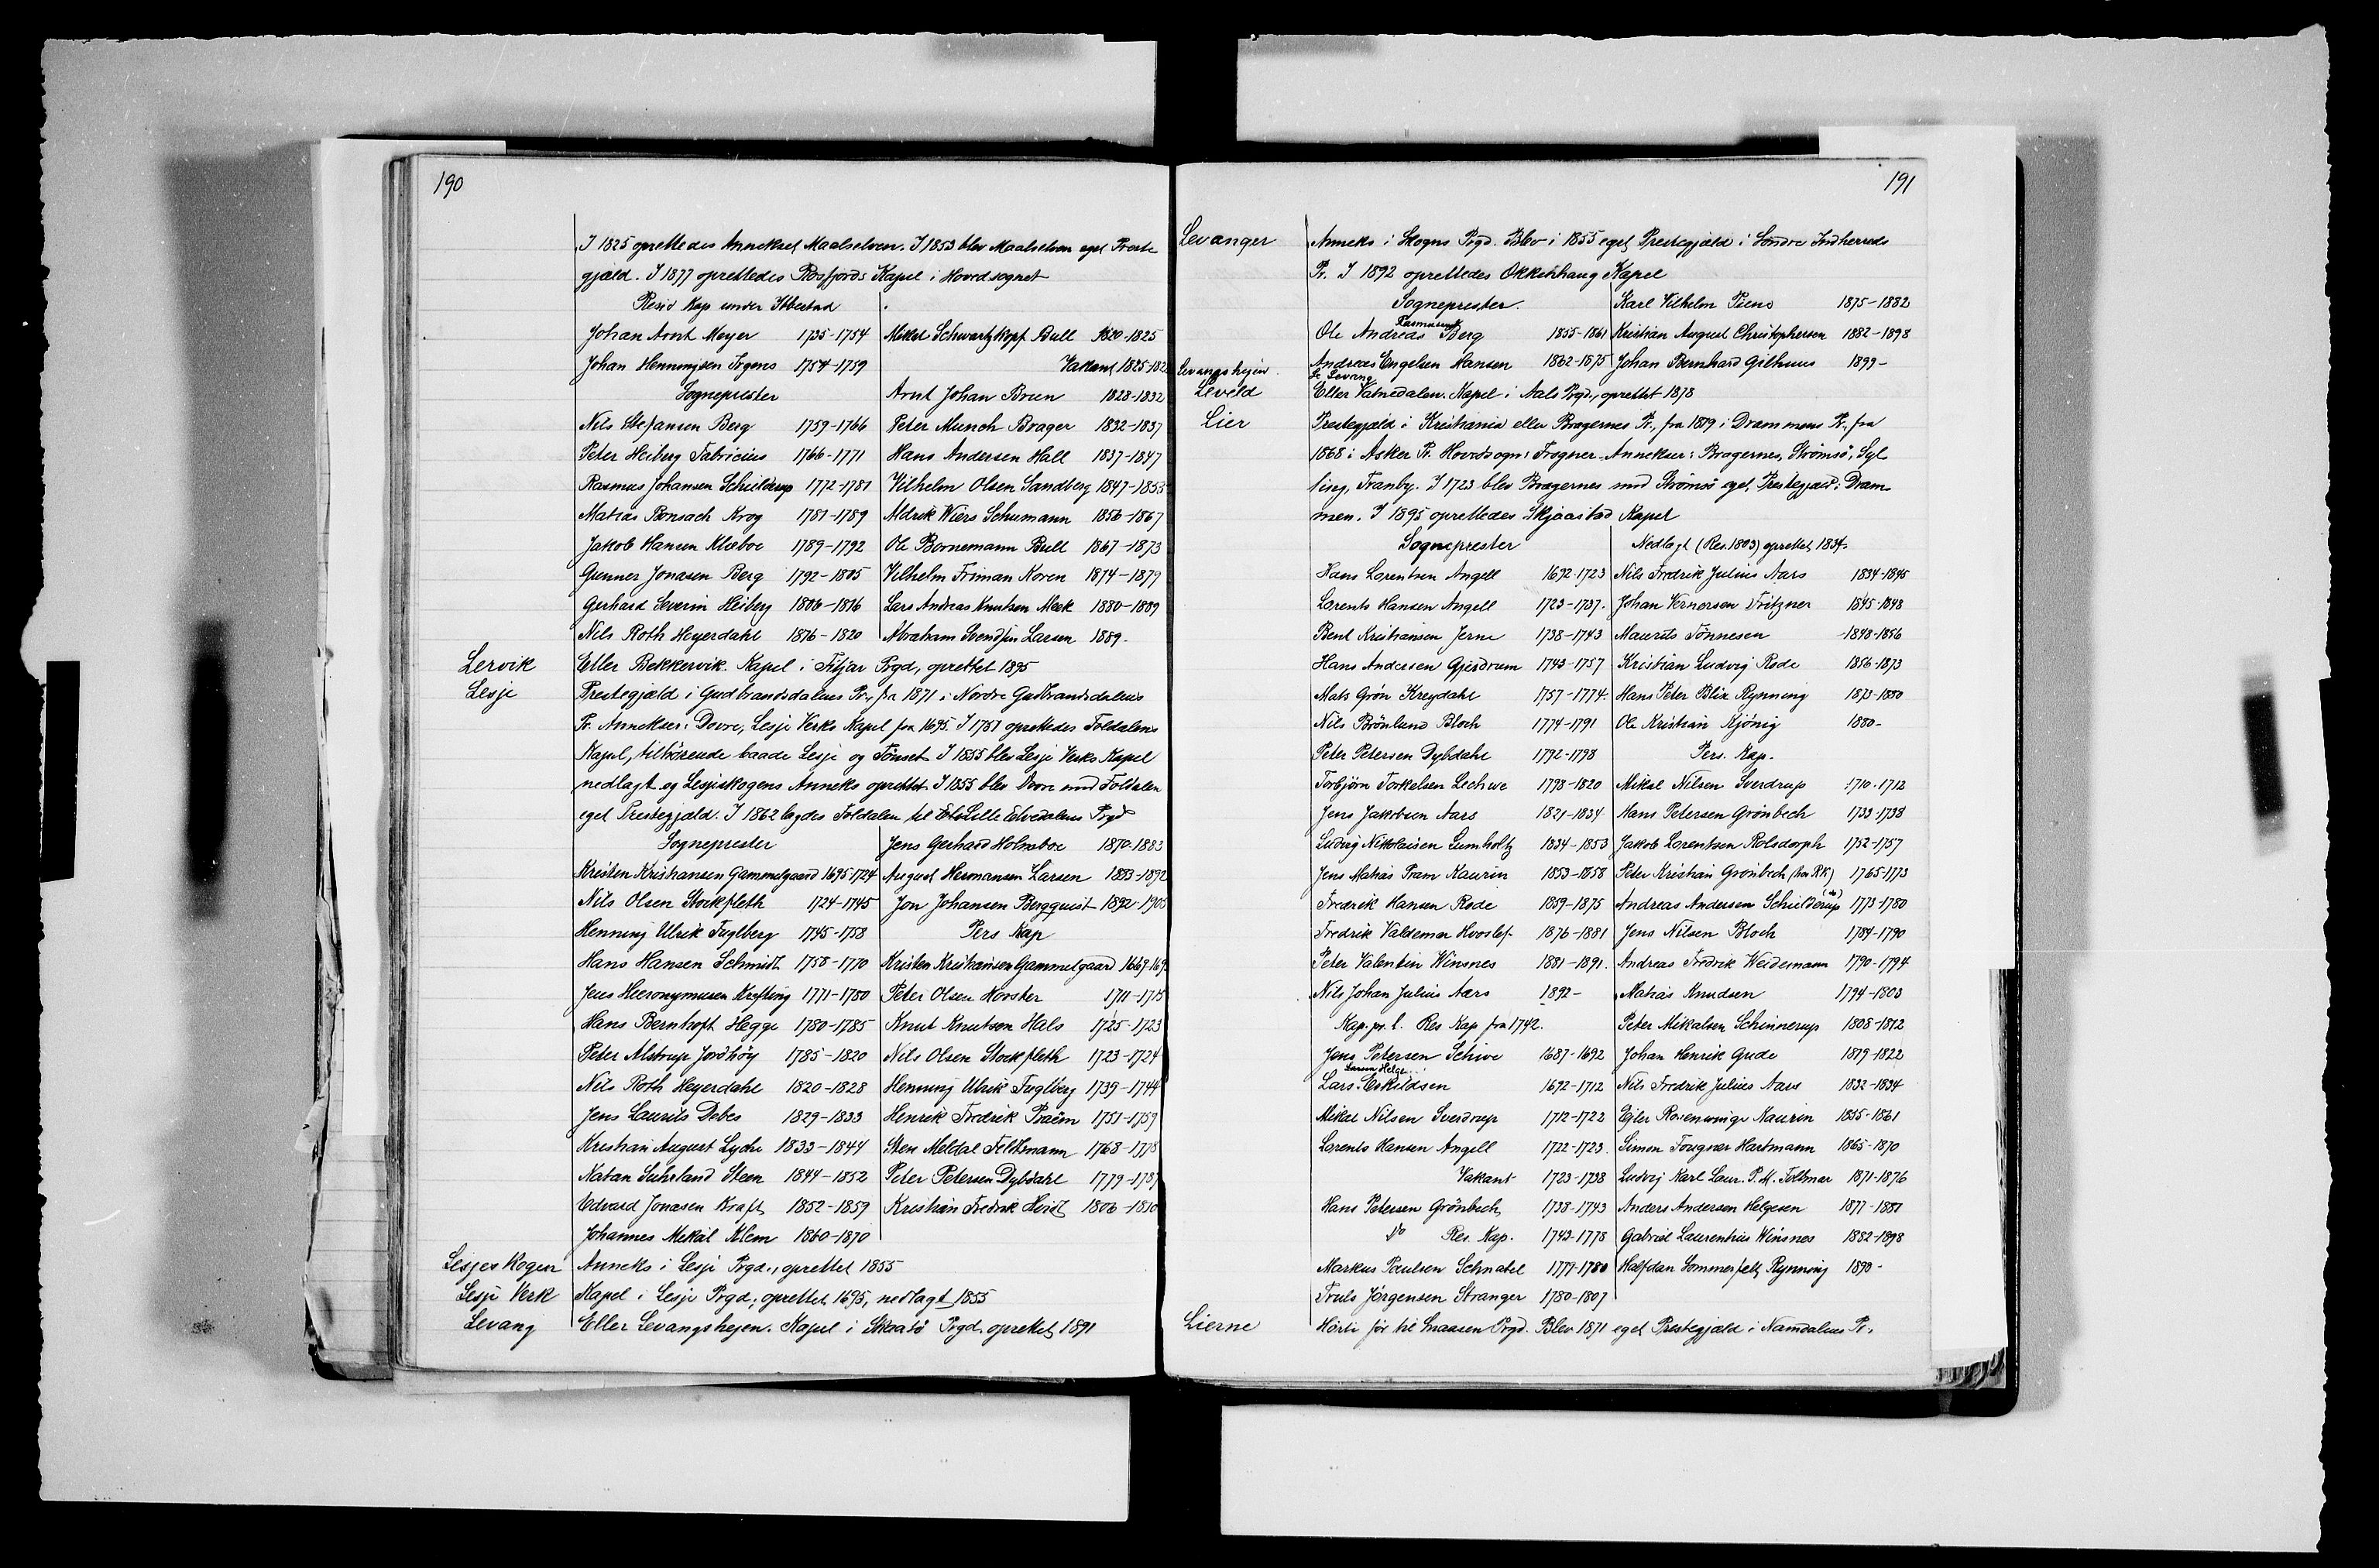 190
I 1825 oprettedes Annekset Maalselven. I 1853 blev Maalselven eget Preste
gjæld. I 1877 oprettedes Rosfjords Kapel i Hovedsognet
Resid Kap under Ibbestad
Johan Arnt Meyer 1735-1754
Johan Henningsen Irgens 1754-1759
Sogneprester
Nils Stefansen Berg 1759-1766
Peter Heiberg Fabricius 1766-1771
Rasmus Johansen Schielderup 1772-1781
Matias Bonsach Krog 1781-1789
Jakob Hansen Klæboe 1789-1792
Gunner Jonasen Berg 1792-1805
Gerhard Severin Heiberg 1806-1816
Nils Roth Heyerdahl 1816-1820
Mikel Schwartzkopf Bull 1820-1825
Vakant 1825-182
Arnt Johan Bruun 1828-1832
Peter Munch Brager 1832-1837
Hans Andersen Hall 1837-1847
Vilhelm Olsen Sandberg 1847-1853
Aldrik Wiers Schumann 1856-1867
Ole Bornemann Bull 1867-1873
Vilhelm Friman Koren 1874-1879
Lars Andreas Knutsen Meek 1880-1889
Abraham Svendsen Larsen 1889-
Lervik Eller Bekkervik. Kapel i Fitjar Prgd, oprettet 1895
Lesje Prestegjæld i Gudbrandsdalens Pr., fra 1871 i Nordre Gudbrandsdalens
Pr. Annekser: Dovre, Lesje Verks Kapel fra 1695. I 1757 oprettedes Foldalens
Kapel, tilhørende baade Lesje og Tønset. I 1855 blev Lesje Verks Kapel
nedlagt og Lesjeskogens Anneks oprettet. I 1855 blev Dovre med Foldalen
eget Prestegjæld. I 1862 lagdes Foldalen til Lille Elvedalens Prgd
Sogneprester
Kristen Kristiansen Gammelgaard 1695-1724
Nils Olsen Stockfleth 1724-1745
Henning Ulrik Fuglberg 1745-1758
Hans Hansen Schmidt 1758-1770
Jens Hieronymusen Krefting 1771-1780
Hans Bernhoft Hegge 1780-1785
Peter Alstrup Jordhøy 1785-1820
Nils Roth Heyerdahl 1820-1828
Jens Laurits Debes 1829-1833
Kristian August Lyche 1833-1844
Natan Suhrland Steen 1844-1852
Edvard Jonasen Kraft 1852-1859
Johannes Mikal Klem 1860-1870
Jens Gerhard Holmboe 1870-1883
August Hermansen Larsen 1883-1892
Jon Johansen Bergquist 1892-1905
Pers Kap
Kristen Kristiansen Gammelgaard 1669-169
Peter Olsen Hovster 1711-1715
Knut Knutsen Hals 1715-1723
Nils Olsen Stockfleth 1723-1724
Henning Ulrik Fuglberg 1739-1744
Henrik Fredrik Praëm 1751-1759
Sten Meldal Feltmann 1768-1778
Peter Petersen Dybdahl 1779-178
Kristian Fredrik Hvidt 1806-1810
Lesjeskogen Anneks i Lesje Prgd., oprettet 1855
Lesje Verk Kapel i Lesje Prgd., oprettet 1695, nedlagt 1855
Levang Eller Levangshejen. Kapel i Skaatø Prgd. oprettet 1891
191
Levanger Anneks i Skogns Prgd. Blev i 1855 eget Prestegjæld i Søndre Indherreds
Pr. I 1892 oprettedes Okkenhaug Kapel
Sogneprester.
Ole Andreas Rasmusen Berg 1855-1861
Andreas Engelsen Hansen 1862-1875
Karl Vilhelm Piene 1875-1882
Kristian August Christophersen 1882-1898
Johan Bernhard Gilhuus 1899-
Levangshejen Se Levang
Leveld Eller Vatnedalen. Kapel i Aals Prgd., oprettet 1878
Lier Prestegjæld i Kristiania eller Bragernes Pr., fra 1819 i Drammens Pr., fra
1868 i Asker Pr. Hovedsogn: Frogner. Annekser: Bragernes, Strømsø, Syl
ling, Tranby. I 1723 blev Bragernes med Strømsø eget Prestegjæld: Dram
men. I 1895 oprettedes Skjaastad Kapel
Sogneprester
Hans Lorentsen Angell 1692-1723
Lorents Hansen Angell 1723-1737.
Bent Kristiansen Jerne 1738-1743
Hans Andersen Gjerdrum 1743-1757
Mats Grøn Kreydahl 1757-1774.
Nils Brønlund Bloch 1774-1791
Peter Petersen Dybdahl 1792-1798
Torbjørn Torkelsen Lechve 1798-1820
Jens Jakobsen Aars 1821-1834
Ludvig Nikolaisen Lumholtz 1834-1853
Jens Matias Pram Kaurin 1853-1858
Fredrik Hansen Rode 1859-1875
Fredrik Valdemar Hvoslef 1876-1881
Peter Valentin Winsnes 1881-1891.
Nils Johan Julius Aars 1892-
Kap. pr. l. Res Kap fra 1742.
Jens Petersen Schive 1687-1692
Lars Eskildsen 1692-1712
Mikel Nilsen Sverdrup 1712-1722
Lorents Hansen Angell 1722-1723.
Vakant 1723-1738
Hans Petersen Grønbech 1738-1743
Do Res. Kap. 1743-1778
Markus Poulsen Schnabel 1779-1780
Truls Jørgensen Stranger 1780-1807
Nedlagt (Res. 1803) oprettet 1834.
Nils Fredrik Julius Aars 1834-1845
Johan Vernersen Fritzner 1845-1848
Maurits Tønnesen 1848-1856
Kristian Ludvig Rode 1856-1873
Hans Peter Blix Rynning 1873-1880
Ole Kristian Kjønig 1880-
Pers. Kap.
Mikal Nilsen Sverdrup 1710-1712
Hans Petersen Grønbech 1733-1738
Jakob Lorentsen Rolsdorph 1752-1757
Peter Kristian Grønbech 1765-1773
Andreas Andersen Schielderup (do) 1773-1780
Jens Nilsen Bloch 1784-1790
Andreas Fredrik Weidemann 1790-1794
Matias Knudsen 1794-1803
Peter Mikalsen Schinnerup 1808-1812
Johan Henrik Gude 1819-1822
Nils Fredrik Julius Aars 1832-1834
Egler Rosenwinge Kaurin 1855-1861
Simon Fougner Hartmann 1865-1870
Ludvig Karl Laur. P. M. Foltmar 1871-1876
Anders Andersen Helgesen 1877-1881
Gabriel Laurentius Winsnes 1882-1898
Halfdan Sommerfelt Rynning 1898-
Lierne Hørte før til Snaasen Prgd. Blev 1871 eget Prestegjæld i Namdalens Pr.,